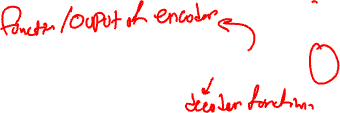 Function/Ouput of encoder
decoder function.